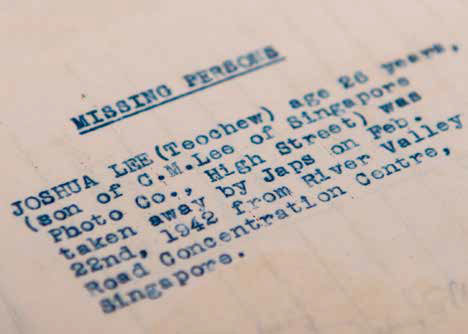 MISSING PERSONS
JOSHUA LEE (Teochew) age 26 years,
(son of C.M.Lee of Singapore
Photo Co., High Street) was
taken away by Japs on Feb.
22nd, 1942 from River Valley
Road Concentration Centre,
Singapore.